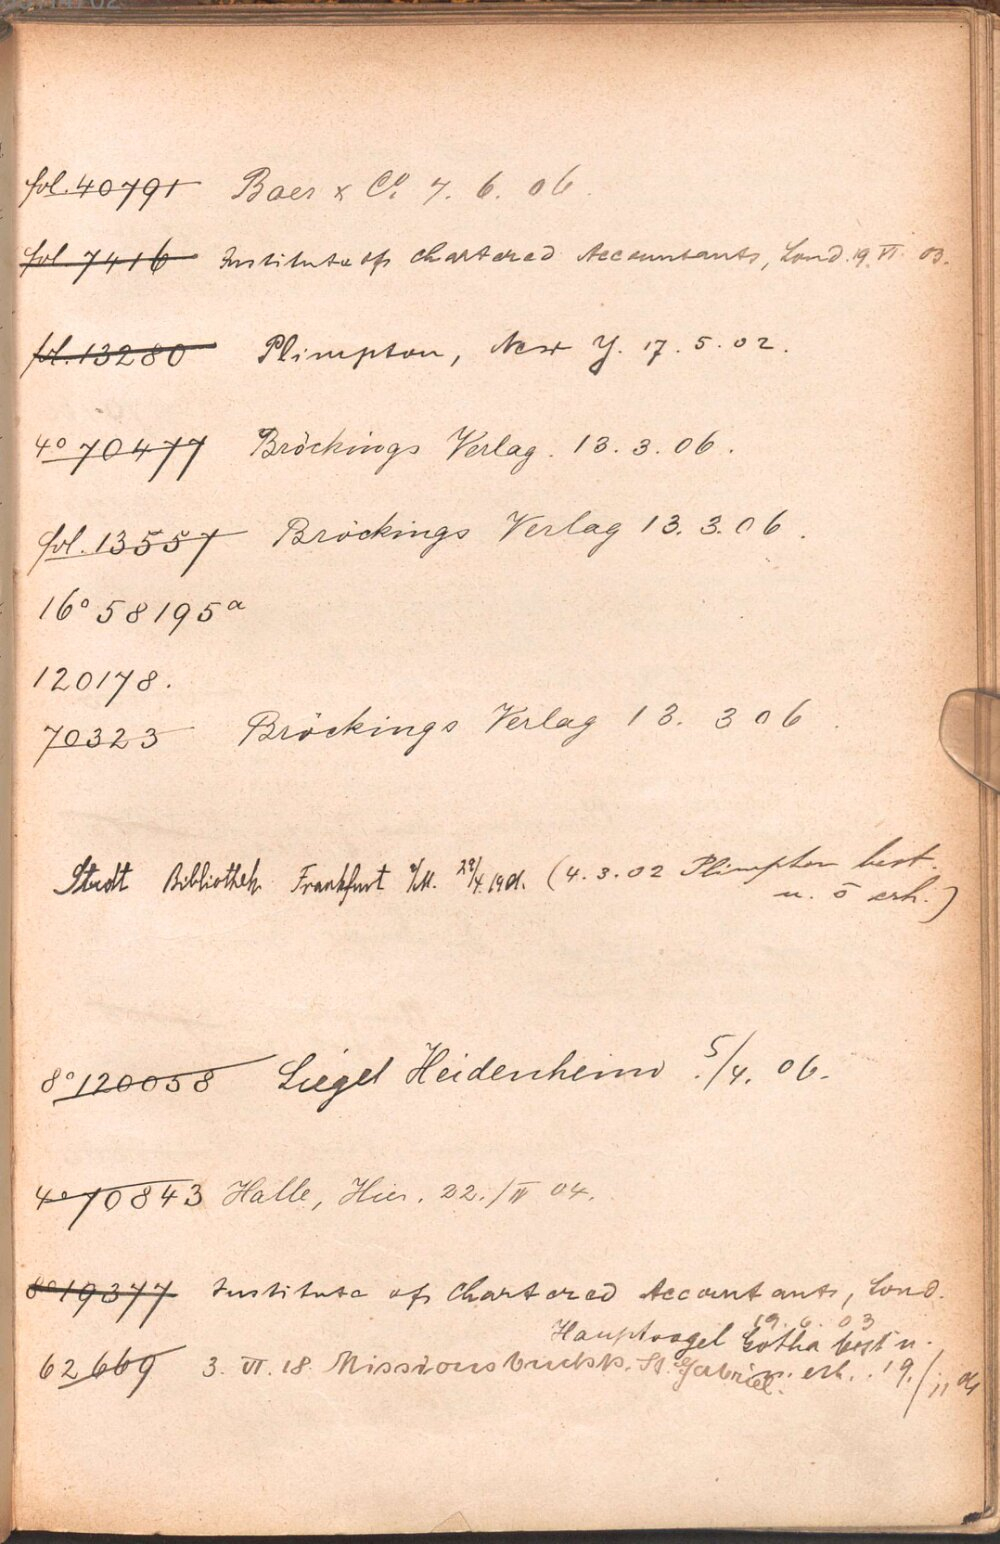 fol. 40791 Baer & Co 7. 6. 06.
fol. 7416 Institute of Chartered Accountants, Lond. 19. VI. 03.
fol. 13280 Plimpton, New Y. 17. 5. 02.
4° 70477 Bröckings Verlag. 13. 3. 06.
fol. 13557 Bröckings Verlag 13. 3. 06.
16° 58195a
120178.
70323 Bröckings Verlag 13. 3 06.
Stadt Bibliothek Frankfurt (4. 3. 02 Plimpton best.
u. 0 erh.)
8° 120058 Siegel Heidenheim 5/4. 06.
4° 70843 Halle, Hier. 22./IV 04.
8° 19377 Institute of Chartered Accountants, Lond.
19. 6. 03
Hauptvogel Gotha best u.
62669 3. VI. 18. Missionsbuchh. St. Gabriel.
n. erh. 19./11 04